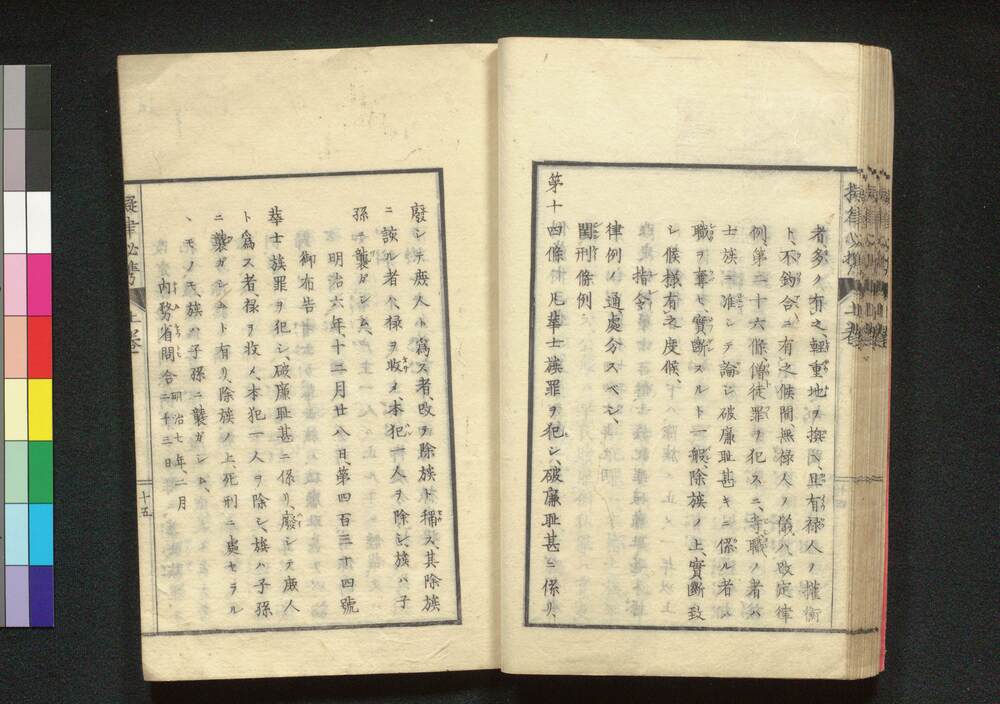 者多ク有之、輕重地ヲ換ヘ、且有祿人ノ權衡
ト、不釣合ニ有之候間、無祿人ノ儀ハ、改定律
例、第二十六條、僧徒罪ヲ犯スニ、寺職ノ者ハ
士族ニ准シテ論シ、破廉恥甚キニ係ル者ハ、
職ヲ奪ヒ、實斷スルト一般、除族ノ上、實斷致
シ候樣有之度候、
指令
律例ノ通、處分スベシ、
閏刑條例
第十四條 凡華士族罪ヲ犯シ、破廉恥甚ニ係リ、
廢シテ庶人ト爲ス者、改ヲ除族ト稱ス、其除族
ニ該ル者ハ、祿ヲ收メ、本犯一人ヲ除シ、族ハ子
孫ニ襲ガシム、
明治六年、十二月廿八日、第四百三十四號
御布告
華士族罪ヲ犯シ、破廉恥甚ニ係リ、廢シテ庶人
ト爲ス者、祿ヲ收メ、本犯一人ヲ除シ、族ハ子孫
ニ襲ガシムト有リ、除族ノ上、死刑ニ處セラル
、モノモ、族ハ子孫ニ襲ガシム、
內務省問合 明治七年、二月
二十三日
擬律必携
上卷
十五
擬律必携
上卷